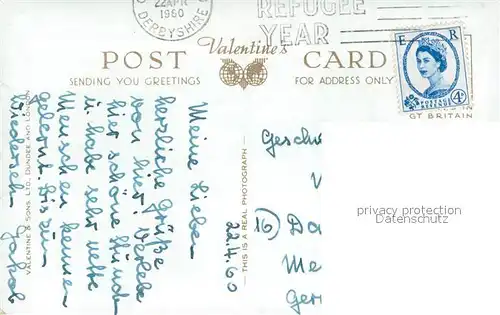 22 APR
1960
DERBYSHIRE
REFUGEE
YEAR
POST Valentine's CARD
SENDING YOU GREETINGS
FOR ADDRESS ONLY
E R
POSTAGE
REVENUE
4D
GT BRITAIN
VALENTINE & SONS, LTD., DUNDEE AND LONDON
THIS IS A REAL PHOTOGRAPH
22.4.60
Meine Lieben
herzliche Grüße
von hier. Verlebe
hier schöne Stunden
u. habe sehr nette
Menschen kennen
gelernt. Bis zum
Wiedersehn
Geschw
V
16) Da
Me
Ger
privacy protection
Datenschutz